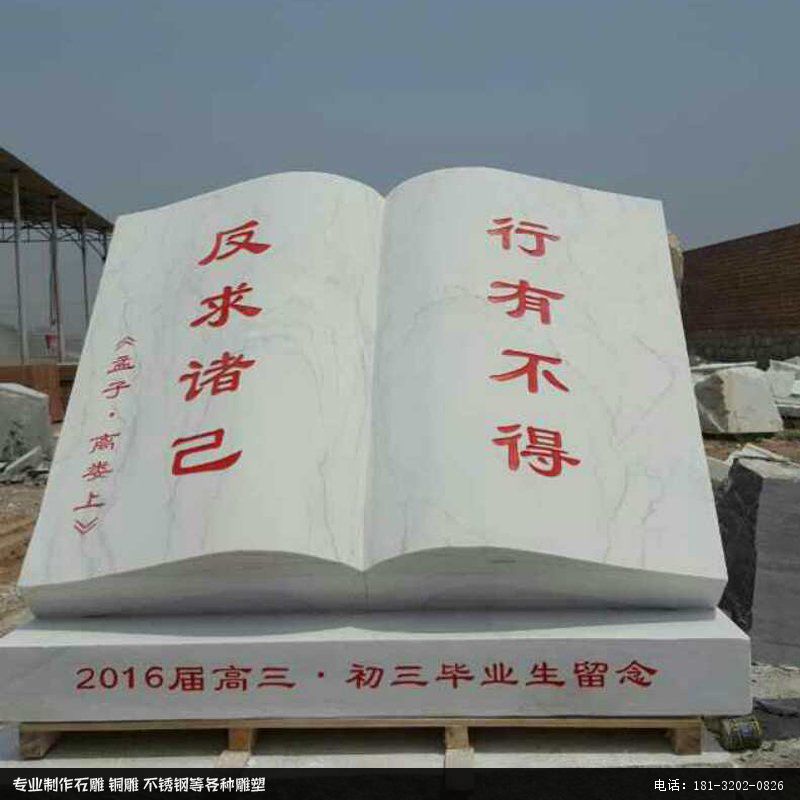 行有不得
反求诸己
《孟子·离娄上》
2016届高三·初三毕业生留念
专业制作石雕 铜雕 不锈钢等各种雕塑
电话：181-3202-0826